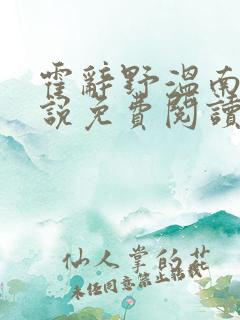 霍辭野溫南
說免費閱讀
仙人掌的花
未经同意禁止转载